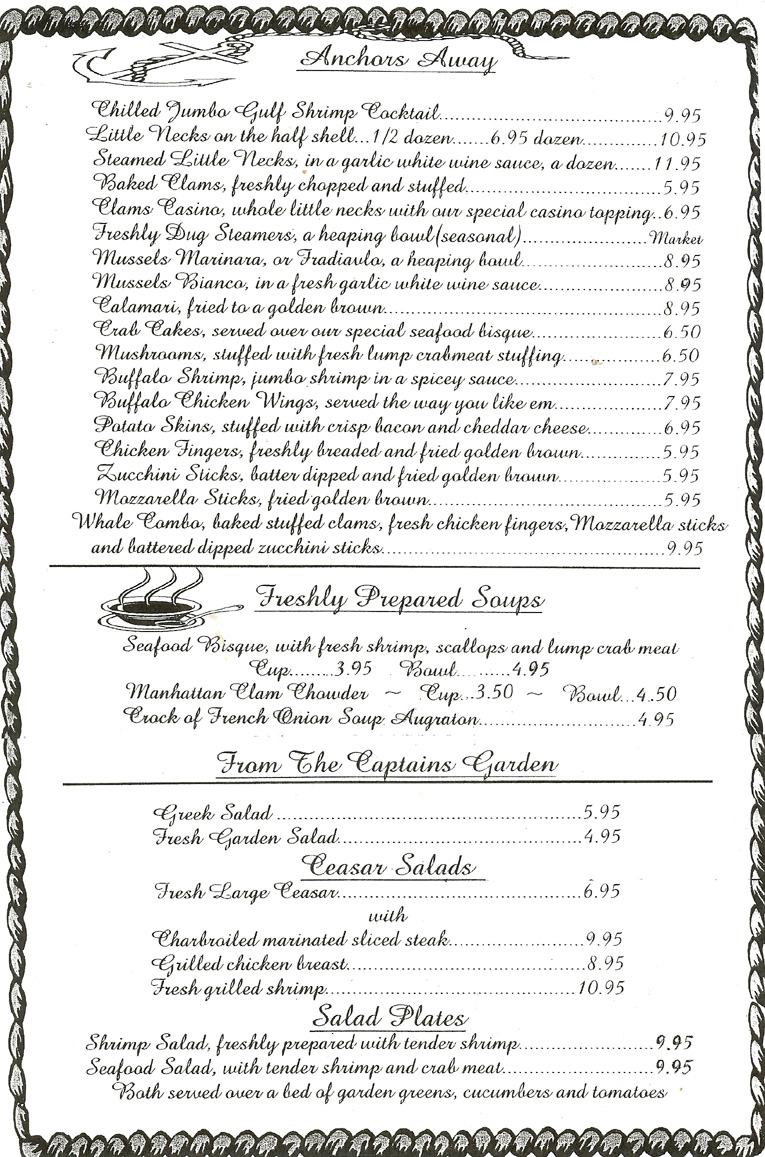 Anchors Away
Chilled Jumbo Gulf Shrimp Cocktail.................................9.95
Little Necks on the half shell...1/2 dozen.......6.95 dozen...............10.95
Steamed Little Necks, in a garlic white wine sauce, a dozen.......11.95
Baked Clams, freshly chopped and stuffed.............................5.95
Clams Casino, whole little necks with our special casino topping..6.95
Freshly Dug Steamers, a heaping bowl(seasonal)..................Market
Mussels Marinara, or Fradiavlo, a heaping bowl....................8.95
Mussels Bianco, in a fresh garlic white wine sauce.................8.95
Calamari, fried to a golden brown.........................................8.95
Crab Cakes, served over our special seafood bisque..................6.50
Mushrooms, stuffed with fresh lump crabmeat stuffing..............6.50
Buffalo Shrimp, jumbo shrimp in a spicey sauce.....................7.95
Buffalo Chicken Wings, served the way you like em................7.95
Potato Skins, stuffed with crisp bacon and cheddar cheese..........6.95
Chicken Fingers, freshly breaded and fried golden brown............5.95
Zucchini Sticks, batter dipped and fried golden brown...............5.95
Mozzarella Sticks, fried golden brown..................................5.95
Whale Combo, baked stuffed clams, fresh chicken fingers,Mozzarella sticks
and battered dipped zucchini sticks.........................................9.95
Freshly Prepared Soups
Seafood Bisque, with fresh shrimp, scallops and lump crab meat
Cup.........3.95 Bowl.........4.95
Manhattan Clam Chowder ~ Cup...3.50 ~ Bowl...4.50
Crock of French Onion Soup Augraton.......................4.95
From The Captains Garden
Greek Salad ............................................5.95
Fresh Garden Salad...................................4.95
Ceasar Salads
Fresh Large Ceasar...................................6.95
with
Charbroiled marinated sliced steak...................9.95
Grilled chicken breast..................................8.95
Fresh grilled shrimp.....................................10.95
Salad Plates
Shrimp Salad, freshly prepared with tender shrimp...................9.95
Seafood Salad, with tender shrimp and crab meat......................9.95
Both served over a bed of garden greens, cucumbers and tomatoes